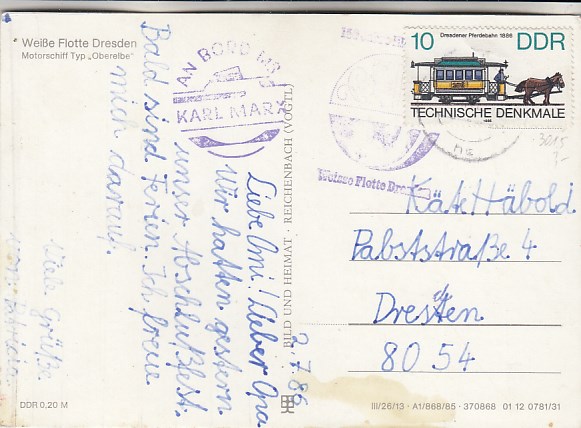 Weiße Flotte Dresden
Motorschiff Typ „Oberelbe“
AN BORD MS
KARL MARX
2.7.86
Liebe Omi! Lieber Opa
wir hatten gestern
unser Abschlußfest.
Bald sind Ferien. Ich freue
mich darauf.
Viele Grüße
von
BILD UND HEIMAT · REICHENBACH (VOGTL)
Dresdener Pferdebahn 1886
10 DDR
TECHNISCHE DENKMALE
1986
3015
Weisse Flotte Dresden
Käte Häbold
Pabststraße 4
Dresden
8054
DDR 0,20 M
III/26/13 · A1/868/85 · 370868 01 12 0781/31